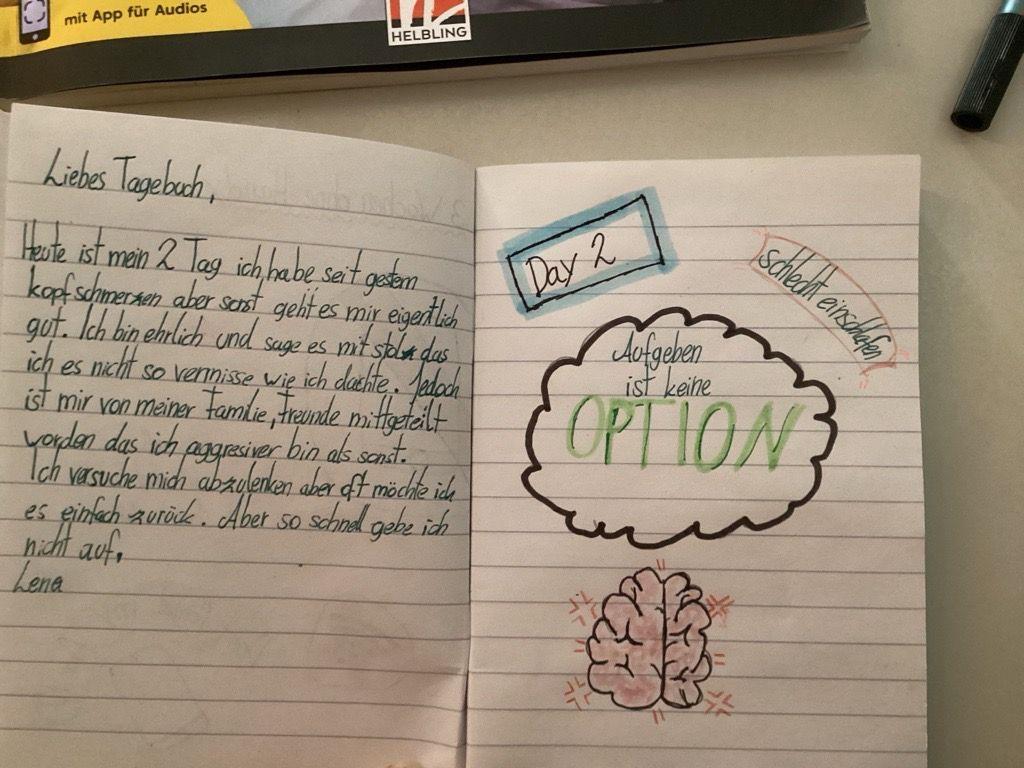 mit App für Audios
HELBLING
Liebes Tagebuch,
Heute ist mein 2 Tag ich habe seit gestern
kopfschmerzen aber sonst geht es mir eigentlich
gut. Ich bin ehrlich und sage es mit stolz das
ich es nicht so vermisse wie ich dachte. Jedoch
ist mir von meiner Familie, freunde mittgeteilt
worden das ich aggresiver bin als sonst.
Ich versuche mich abzulenken aber oft möchte ich
es einfach zurück. Aber so schnell gebe ich
nicht auf.
Lena
Day 2
schlecht einschlafen
Aufgeben
ist keine
OPTION